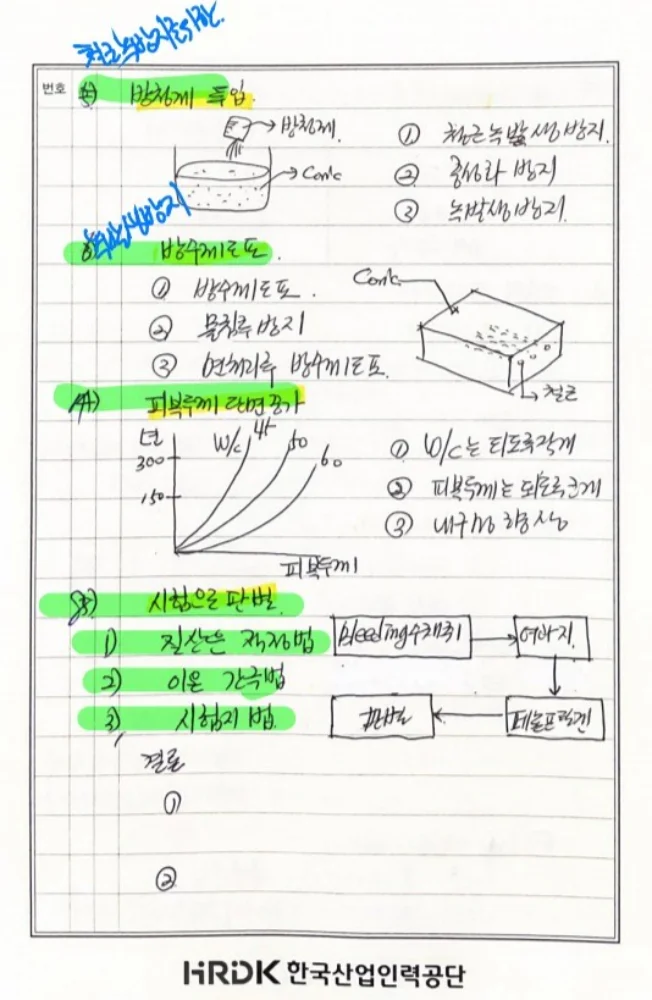 철근 녹방지를 위한
번호
방청제 투입.
방청제.
Conc
① 철근 녹발생방지.
② 중성화 방지
③ 녹발생방지.
방수제도포.
① 방수제도포.
② 물침투방지
③ 면처리후 방수제도포.
Conc
철근
피복두께 단면증가
년
300
150
W/c 45
50
60
피복두께
① W/c는 되도록작게
② 피복두께는 되도록크게
③ 내구성 향상
시험으로 판별.
1) 질산은 적정법
2) 이온 간극법
3) 시험지법.
bleeding수채취
여과지.
판별
결론
①
②
HRDK 한국산업인력공단